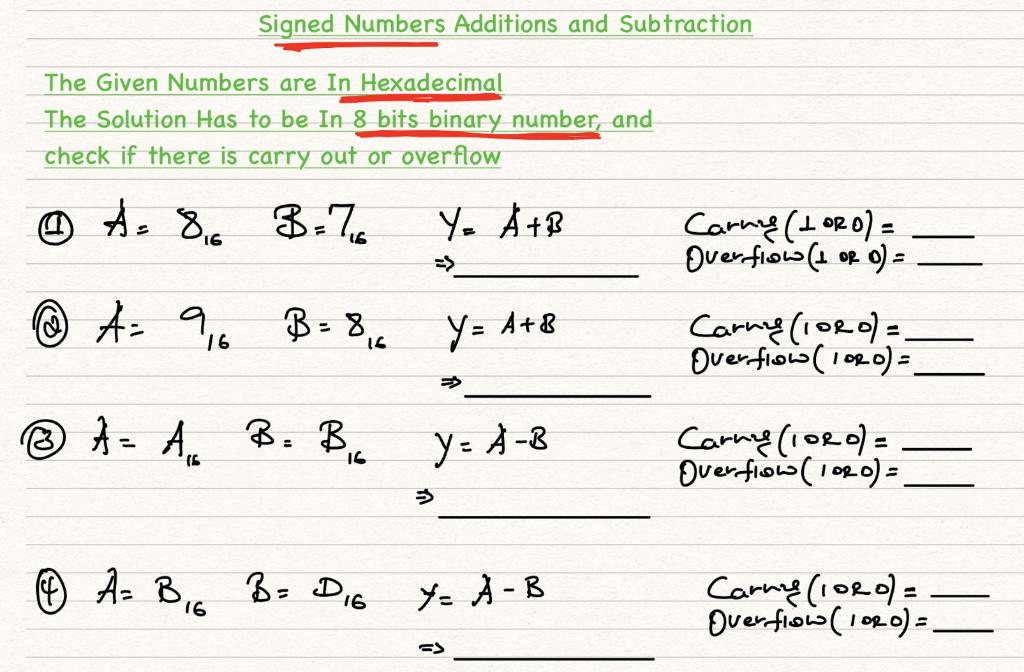 Signed Numbers Additions and Subtraction
The Given Numbers are In Hexadecimal
The Solution Has to be In 8 bits binary number, and
check if there is carry out or overflow
① A = 8₁₆ B = 7₁₆ Y = A + B Carry (1 OR 0) = ____
⇒ ____ Overflow (1 OR 0) = ____
② A = 9₁₆ B = 8₁₆ Y = A + B Carry (1 OR 0) = ____
Overflow (1 OR 0) = ____
⇒ ____
③ A = A₁₆ B = B₁₆ Y = A - B Carry (1 OR 0) = ____
Overflow (1 OR 0) = ____
⇒ ____
④ A = B₁₆ B = D₁₆ Y = A - B Carry (1 OR 0) = ____
Overflow (1 OR 0) = ____
⇒ ____